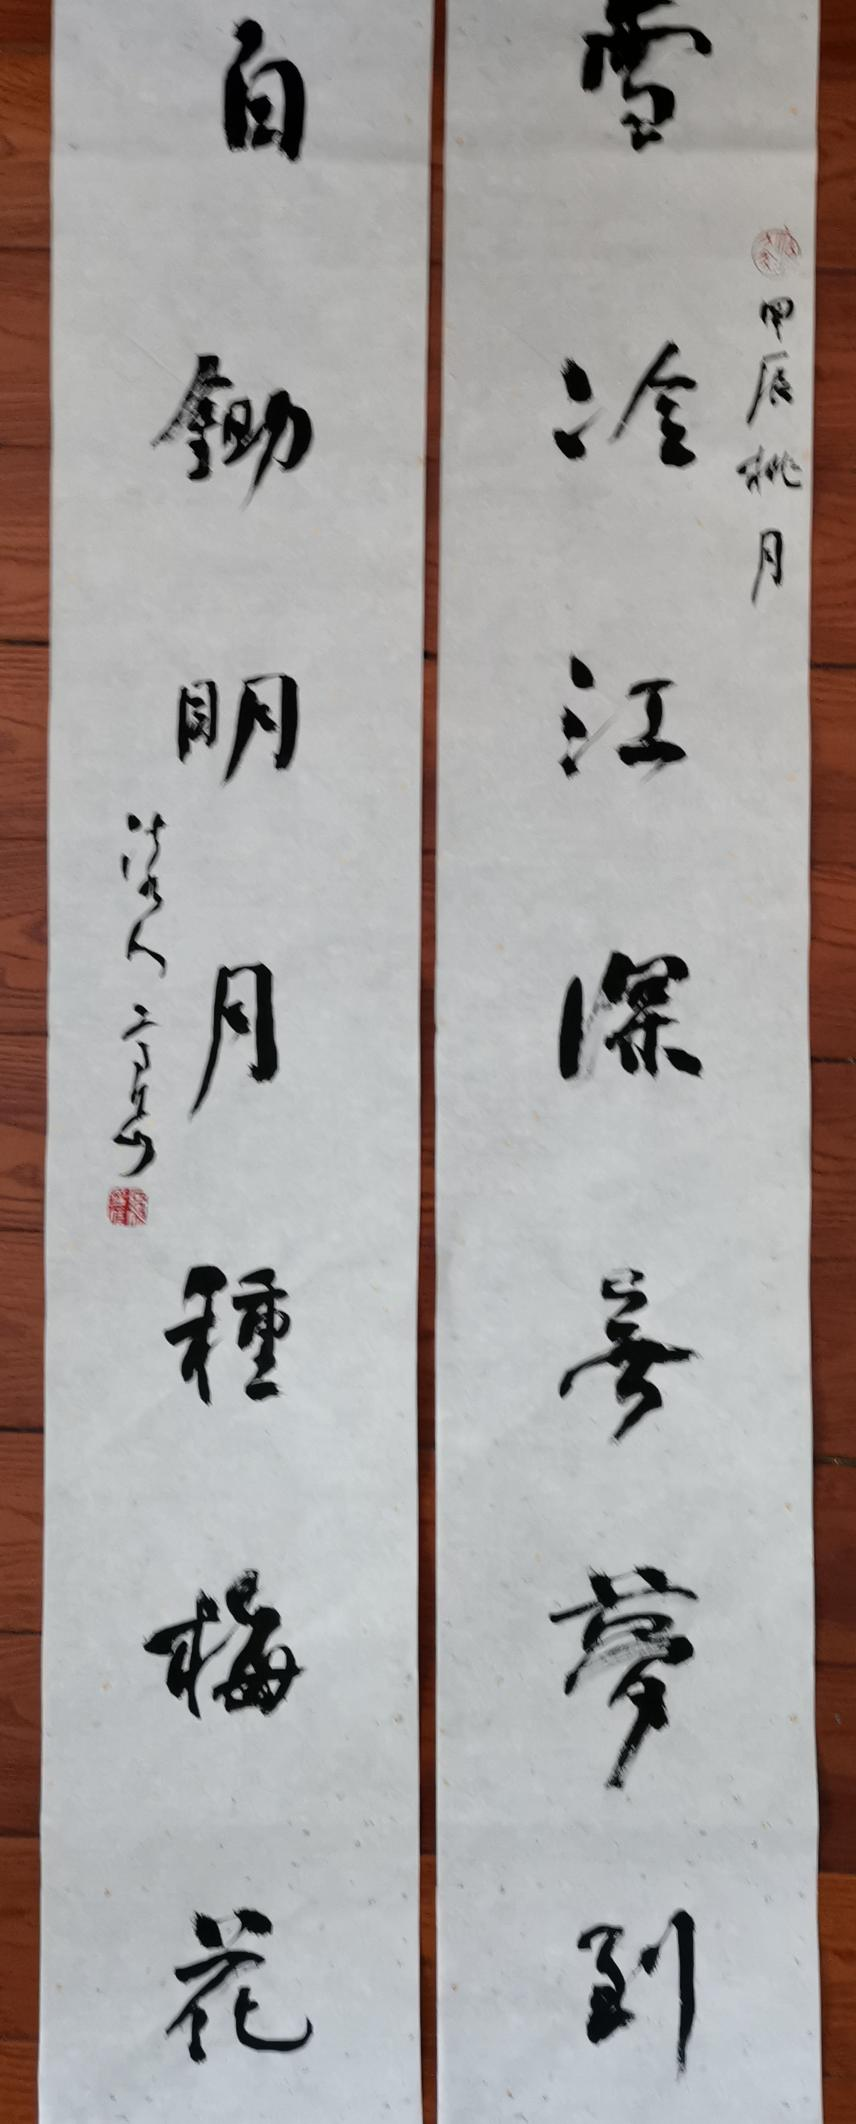 雪冷江深無夢到
甲辰桃月
自鋤明月種梅花